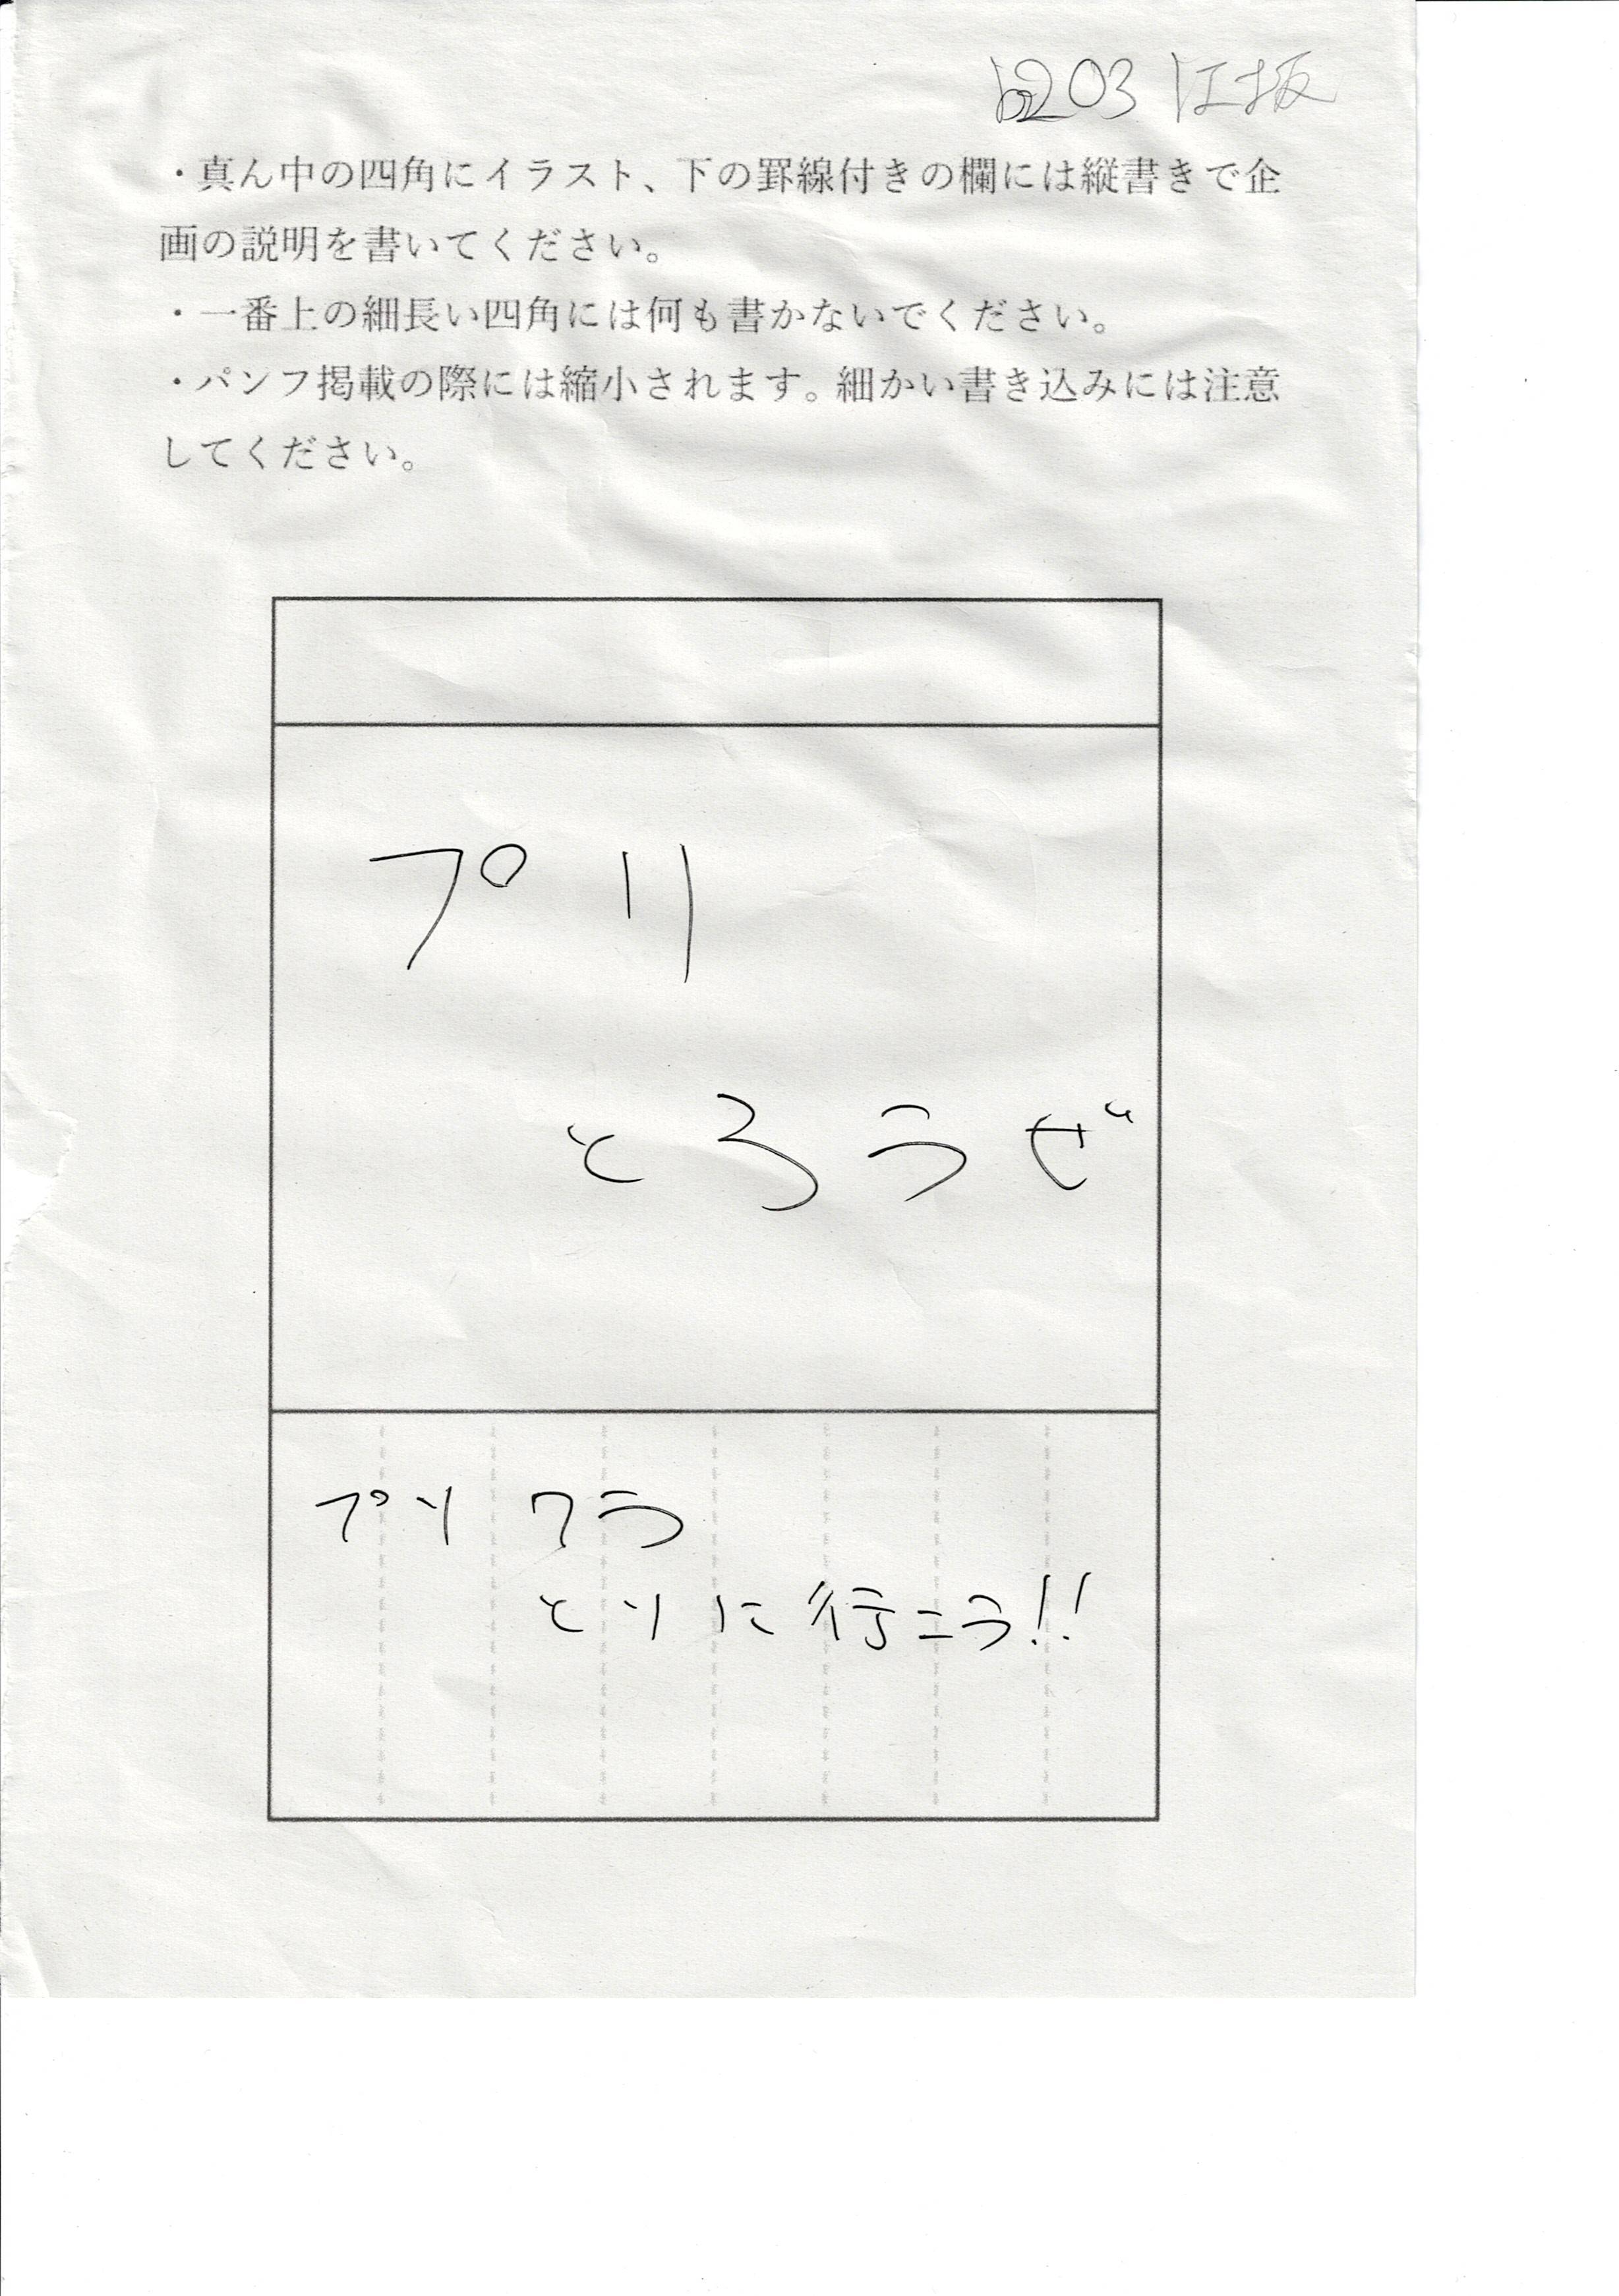 6203 江坂
・真ん中の四角にイラスト、下の罫線付きの欄には縦書きで企
画の説明を書いてください。
・一番上の細長い四角には何も書かないでください。
・パンフ掲載の際には縮小されます。細かい書き込みには注意
してください。
プリ
とろうぜ
プリクラ
とりに行こう!!